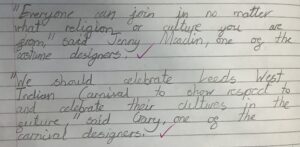 "Everyone can join in no matter
what religion or culture you are
from," said Jenny, one of the
costume designers.
"We should celebrate Leeds West
Indian Carnival to show respect to
and celebrate their cultures in the
future," said Gary, one of the
carnival designers.